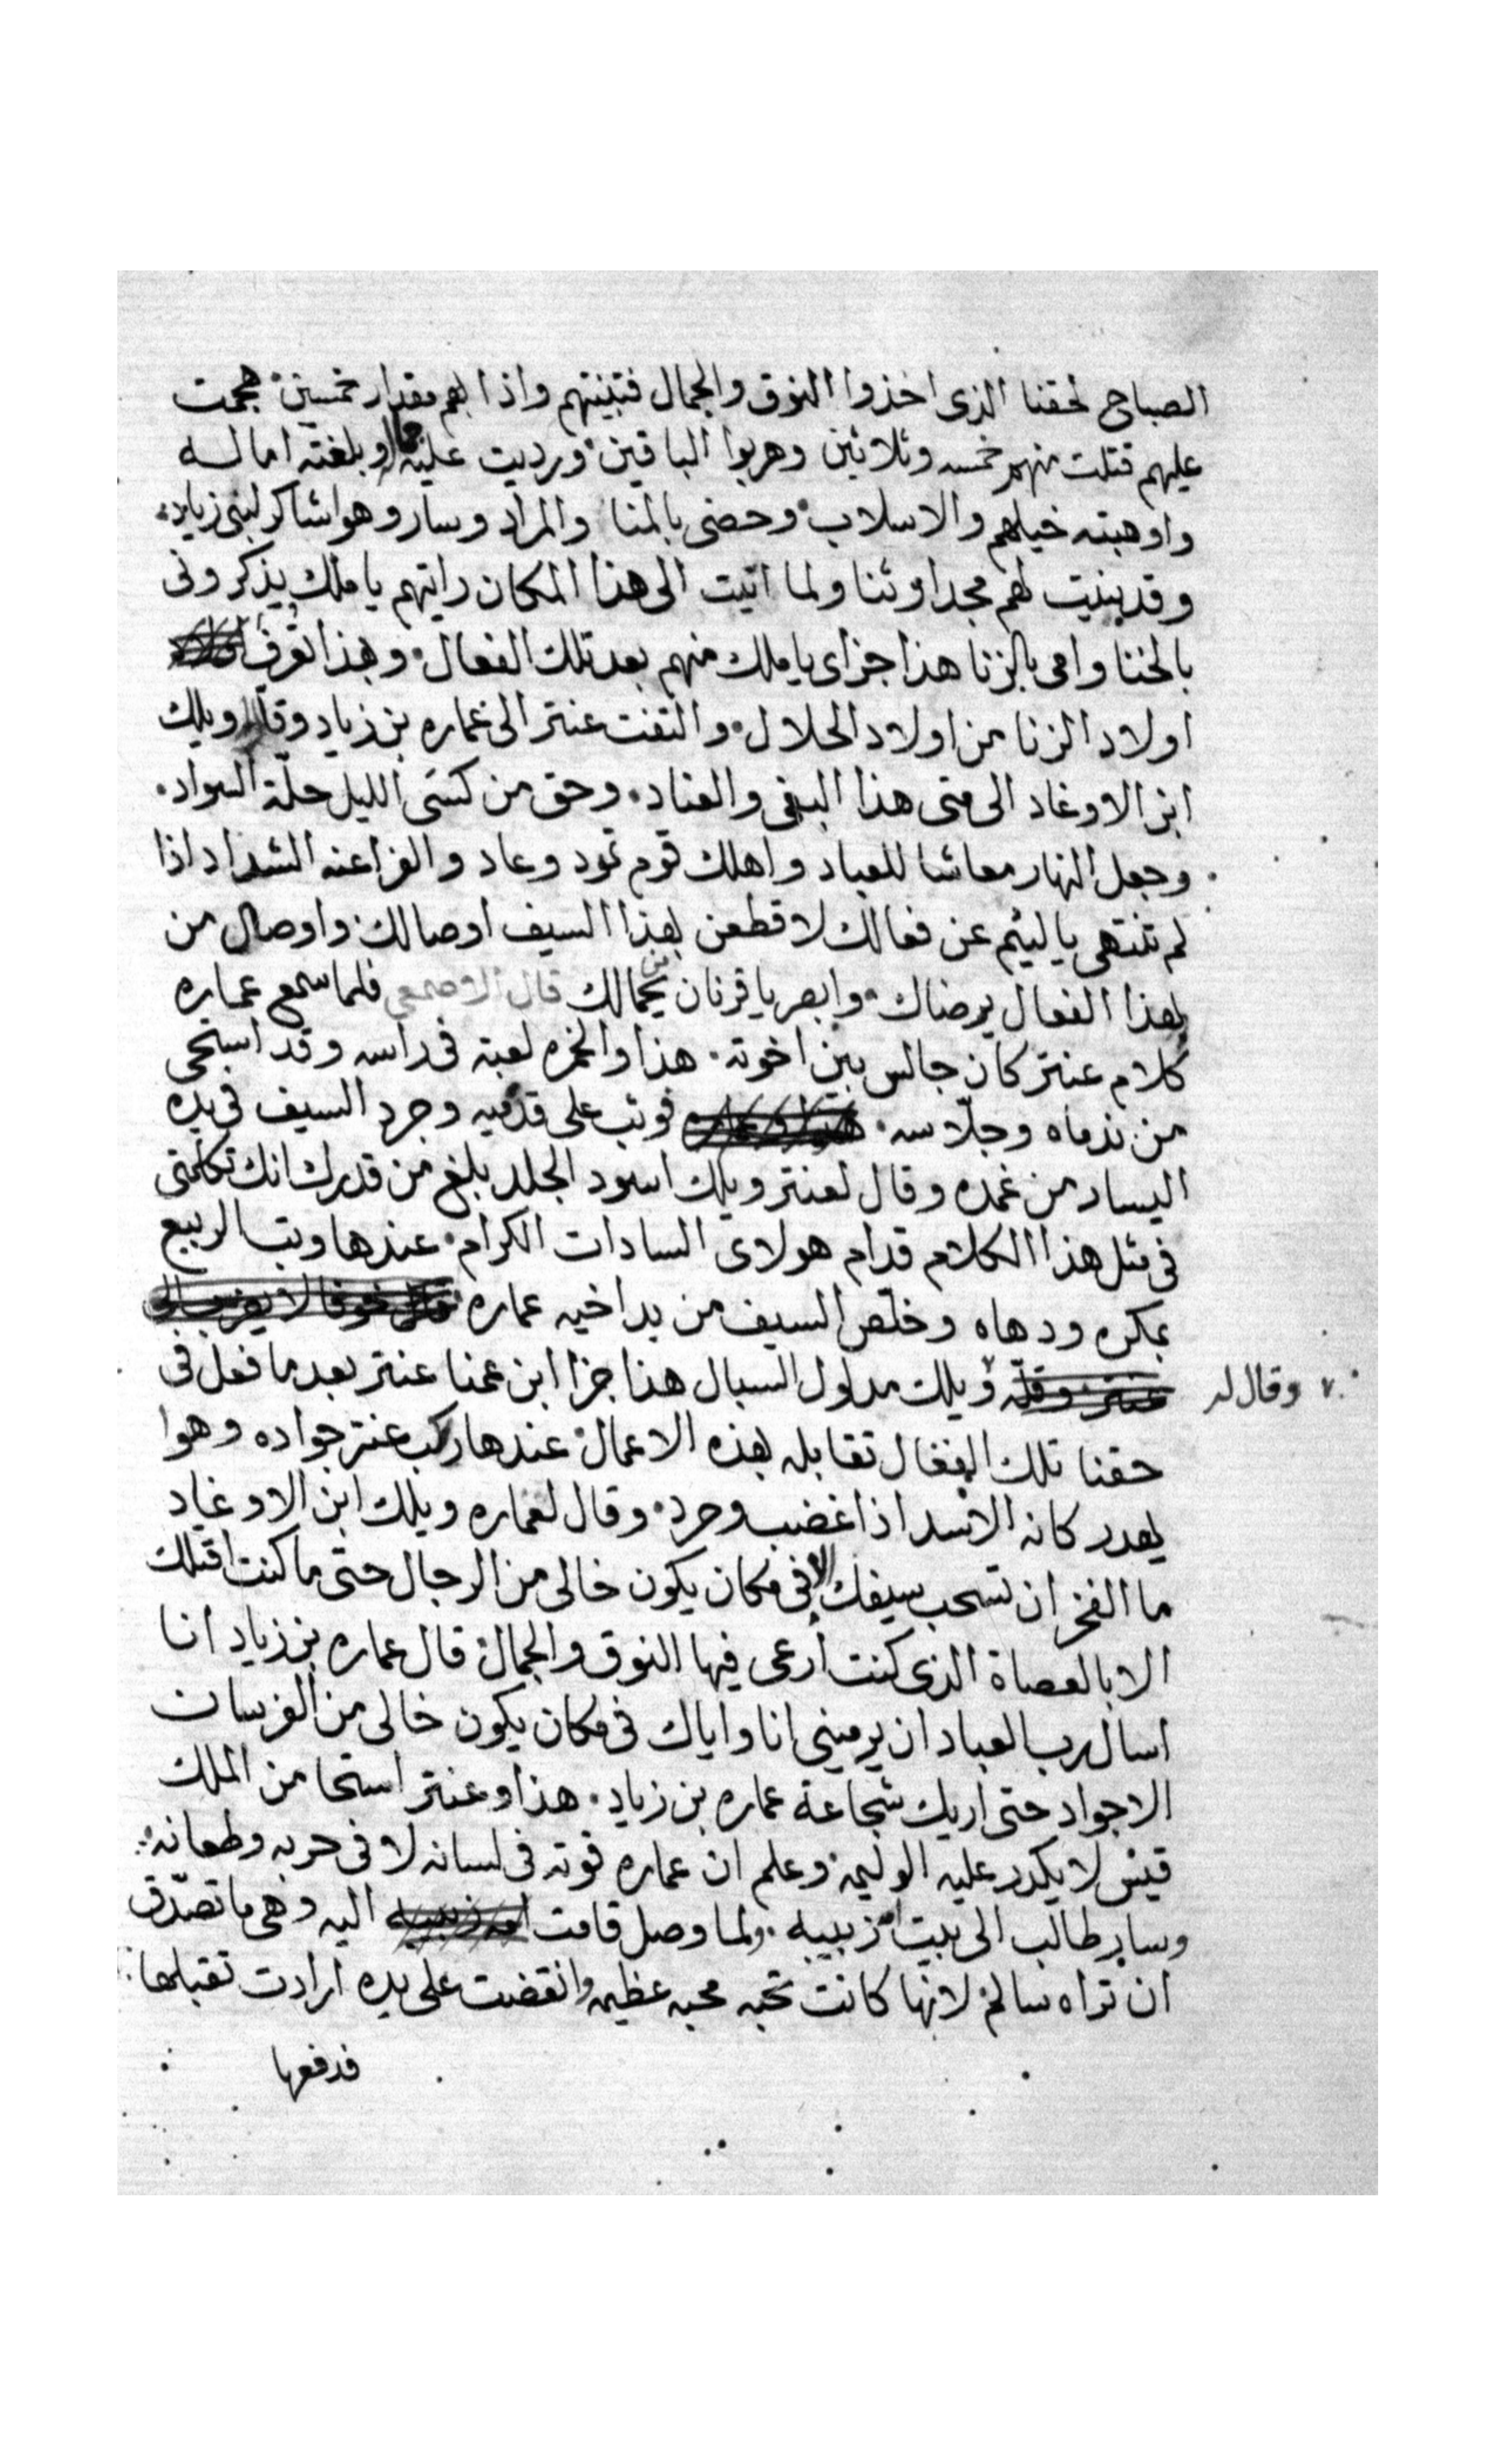 الصباح لحقنا الذى اخذوا النوق والجمال فتبينتهم واذا بهم مقدار خمسين هجمت
عليهم قتلت منهم خمسه وثلاثين وهربوا الباقين ورديت عليه جماله وبلغته اماله
واوهبته خيلهم والاسلاب وحضى بالمنا والمراد وسار وهوا شاكر لبنى زياد
وقد بنيت لهم مجدا وثنا ولما اتيت الى هذا المكان رايتهم يا ملك يذكرونى
بالخنا وامى بالزنا هذا جزاى يا ملك منهم بعد تلك الفعال وبهذا تعرف
اولاد الزنا من اولاد الحلال والتفت عنتر الى عماره بن زياد وقال ويلك
ابن الاوغاد الى متى هذا البغى والعناد وحق من كسى الليل حلة السواد
وجعل النهار معاشا للعباد واهلك قوم ثمود وعاد والفراعنه الشداد اذا
لم تنتهى يا ليئم عن فعالك لاقطعن بهذا السيف اوصالك واوصال من
بهذا الفعال يرضاك وابصر يا قرنان من يحمالك قال الاصمعي فلما سمع عماره
كلام عنتر كان جالس بين اخوته هذا والخمره لعبة فى راسه وقد استحى
من ندماه وجلاسه فوثب على قدميه وجرد السيف فى يده
اليسار من غمده وقال لعنتر ويلك اسود الجلد بلغ من قدرك انك تكلمتى
فى مثل هذا الكلام قدام هولاى السادات الكرام عندها وثب الربيع
بمكره ودهاه وخلص السيف من يد اخيه عماره
وقال له ويلك مدلول السبال هذا جزا ابن عمنا عنتر بعد ما فعل فى
حقنا تلك الفعال تقابله بهذه الاعمال عندها ركب عنتر جواده وهوا
يهدر كانه الاسد اذا غضب وحرد وقال لعماره ويلك ابن الاوغاد
ما الفخر ان تسحب سيفك الا فى مكان يكون خالى من الرجال حتى ما كنت اقتلك
الا بالعصاة الذى كنت ارعى فيها النوق والجمال قال عماره بن زياد انا
اسال رب العباد ان يرمينى انا واياك فى مكان يكون خالى من الفرسان
الاجواد حتى اريك شجاعة عماره بن زياد هذا وعنتر استحا من الملك
قيس لا يكدر عليه الوليمه وعلم ان عماره قوته فى لسانه لا فى حربه وطعانه
وساير طالب الى بيت امه زبيبه ولما وصل قامت اليه وهى ما تصدق
ان تراه سالم لانها كانت تحبه محبه عظيمه وانقضت على يده ارادت تقبلها
فدفعها